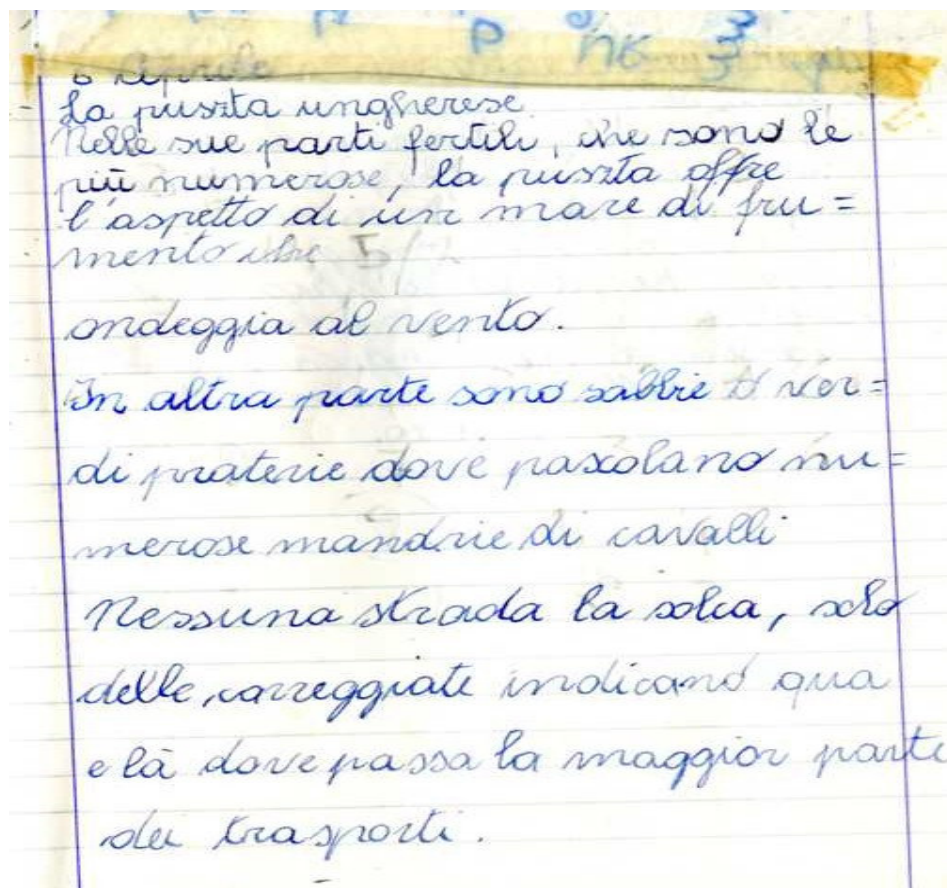 P NG
6 Aprile
La puszta ungherese.
Nelle sue parti fertili, che sono le
più numerose, la puszta offre
l'aspetto di un mare di fru=
mento che
ondeggia al vento.
In altra parte sono sabbie o ver=
di praterie dove pascolano nu=
merose mandrie di cavalli
Nessuna strada la solca, solo
delle carreggiate indicano qua
e là dove passa la maggior parte
dei trasporti.